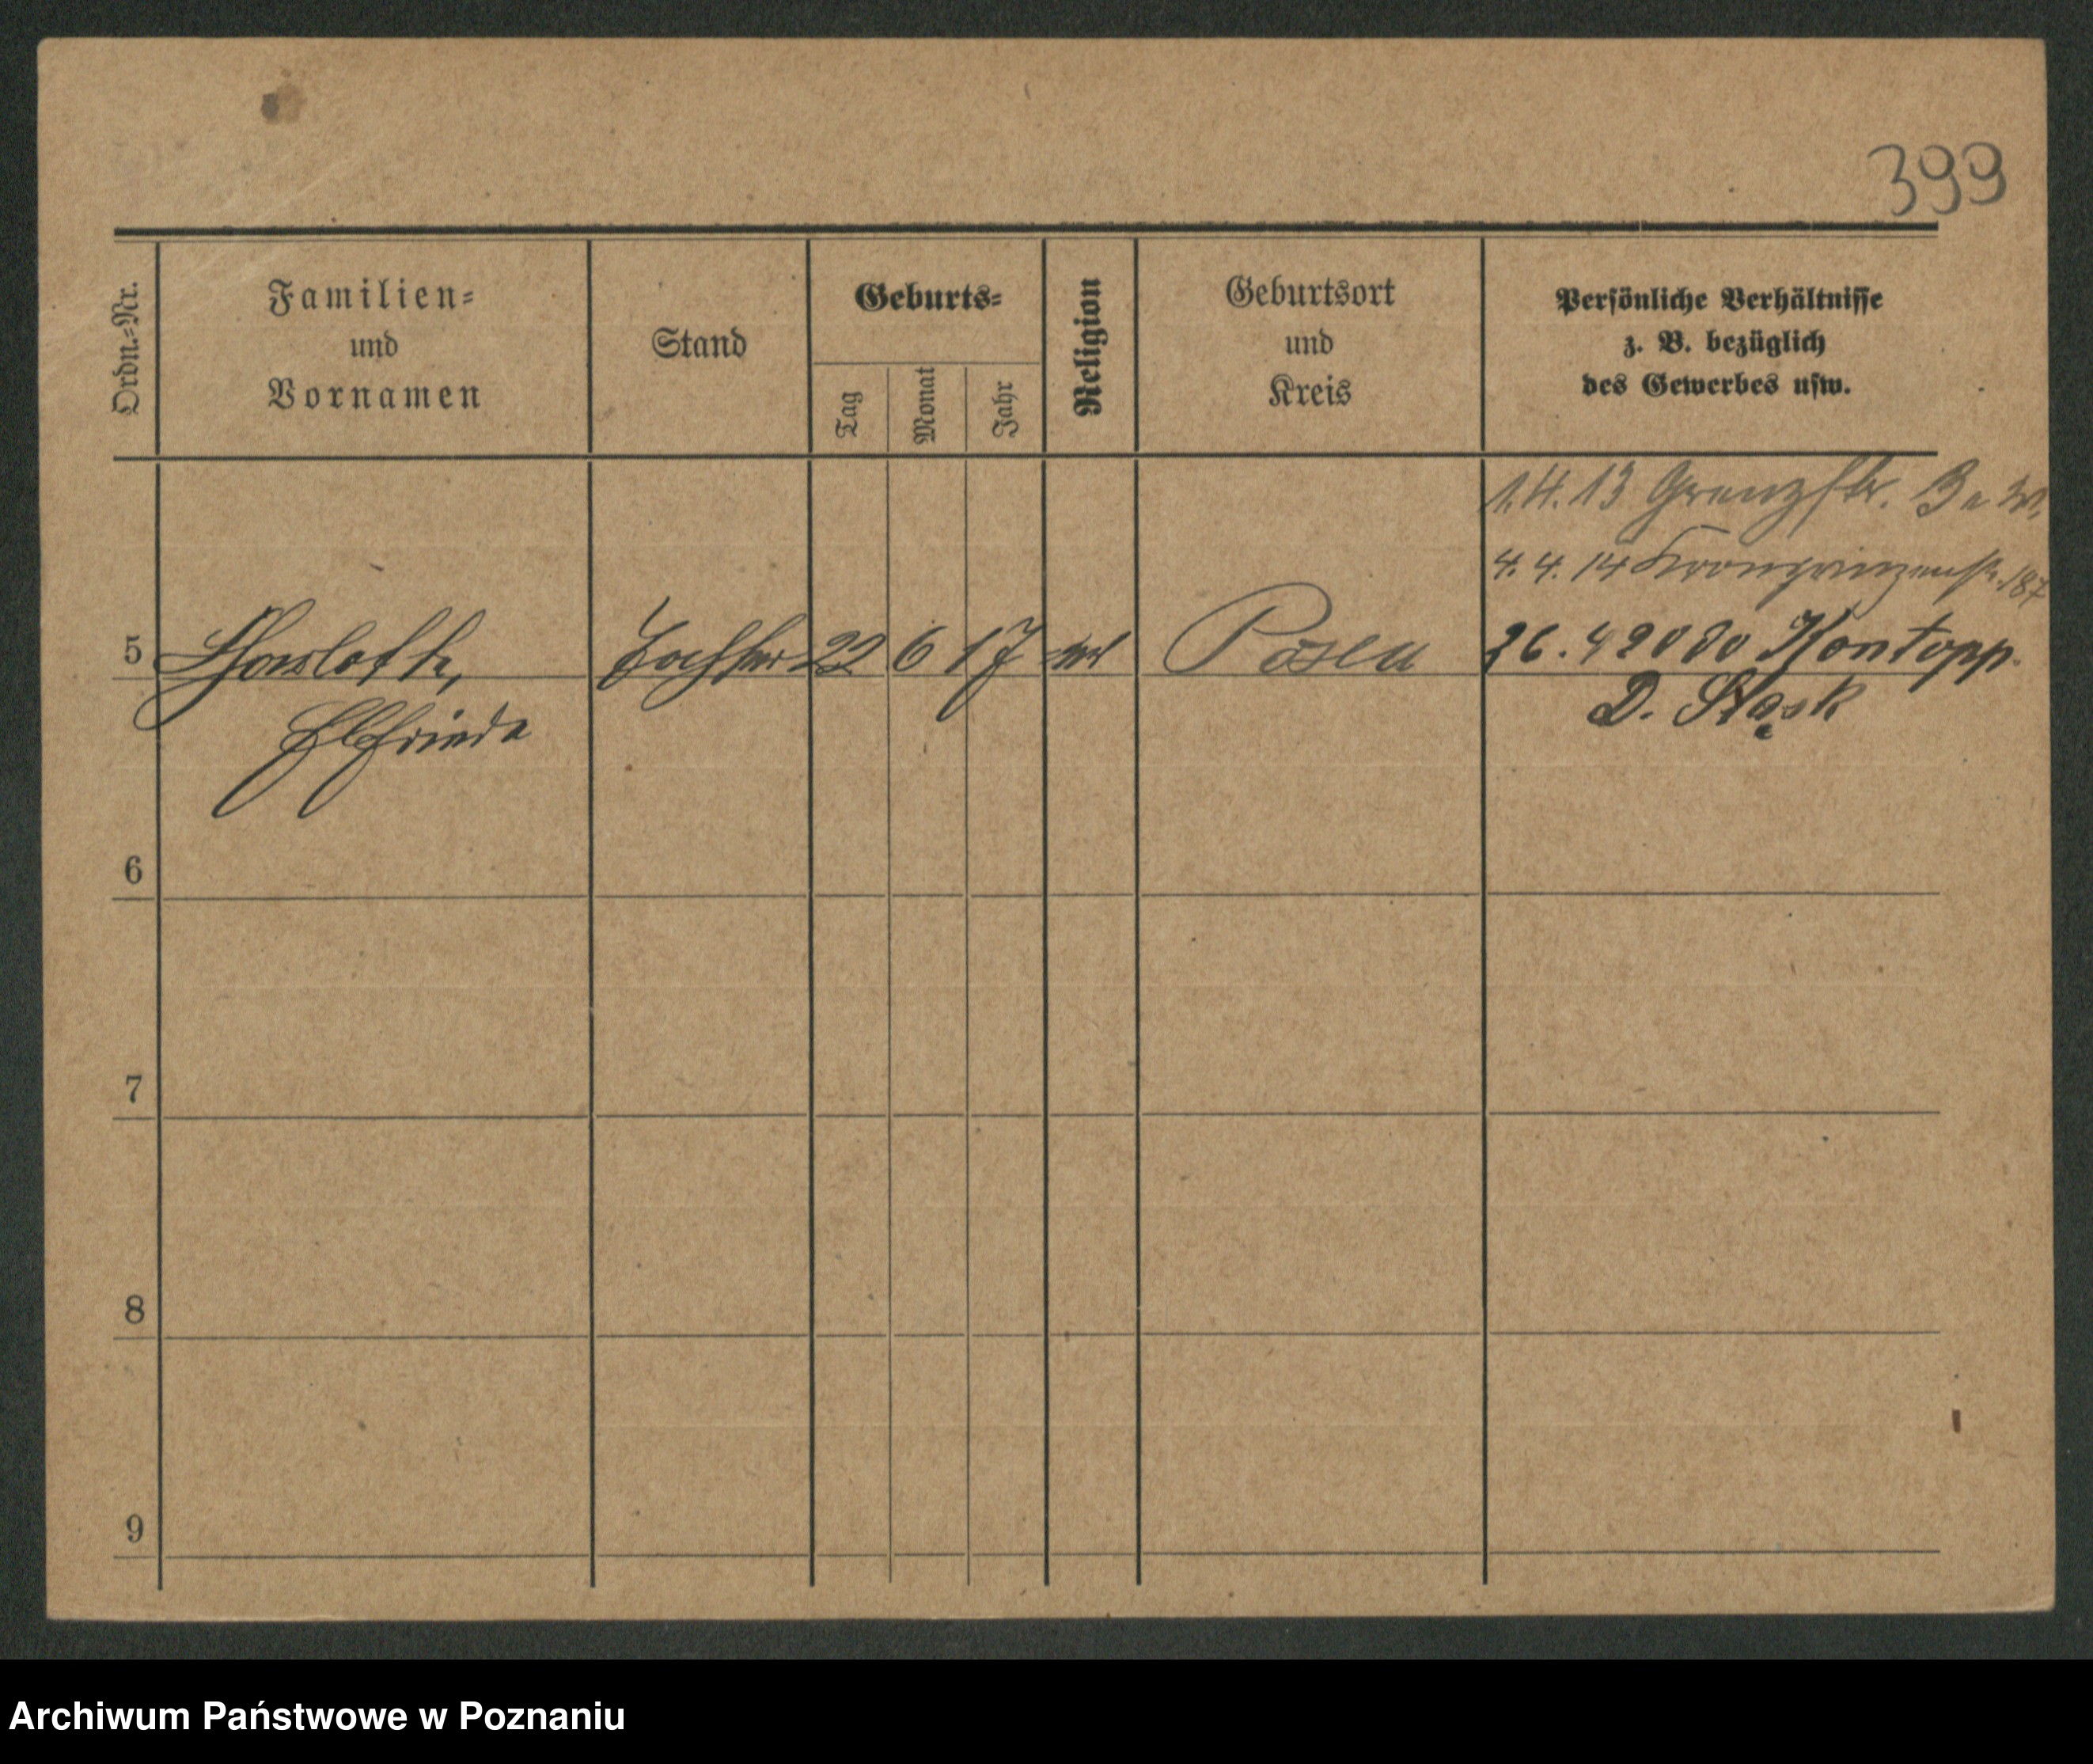 399
Ordn.-Nr.
Familien-
und
Vornamen
Stand
Geburts-
Tag
Monat
Jahr
Religion
Geburtsort
und
Kreis
Persönliche Verhältnisse
z. B. bezüglich
des Gewerbes usw.
1.4.13 Grenzstr.
4. 4. 14 Kronprinzenstr.
5 Tochter 22 6 17 Posen 26.4 Kontopp.
Elfriede D. Śląsk
6
7
8
9
Archiwum Państwowe w Poznaniu